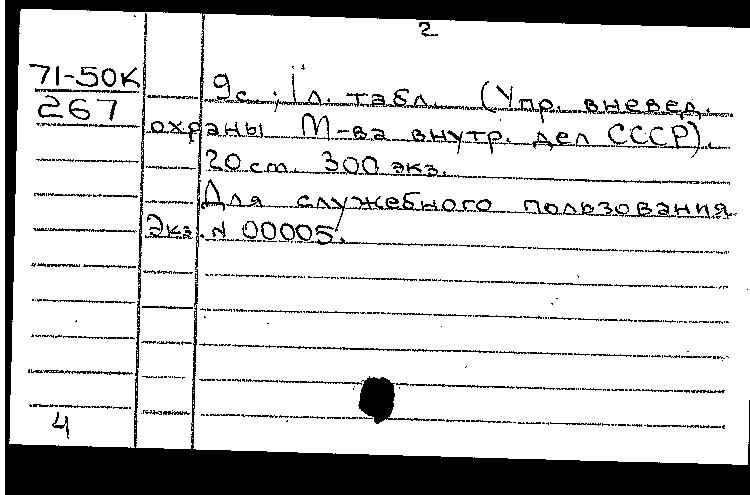 2
71-50К
267
9с.; 1 л. табл. (Упр. вневед.
охраны М-ва внутр. дел СССР).
20 см. 300 экз.
Для служебного пользования
Экз. N 00005.
4